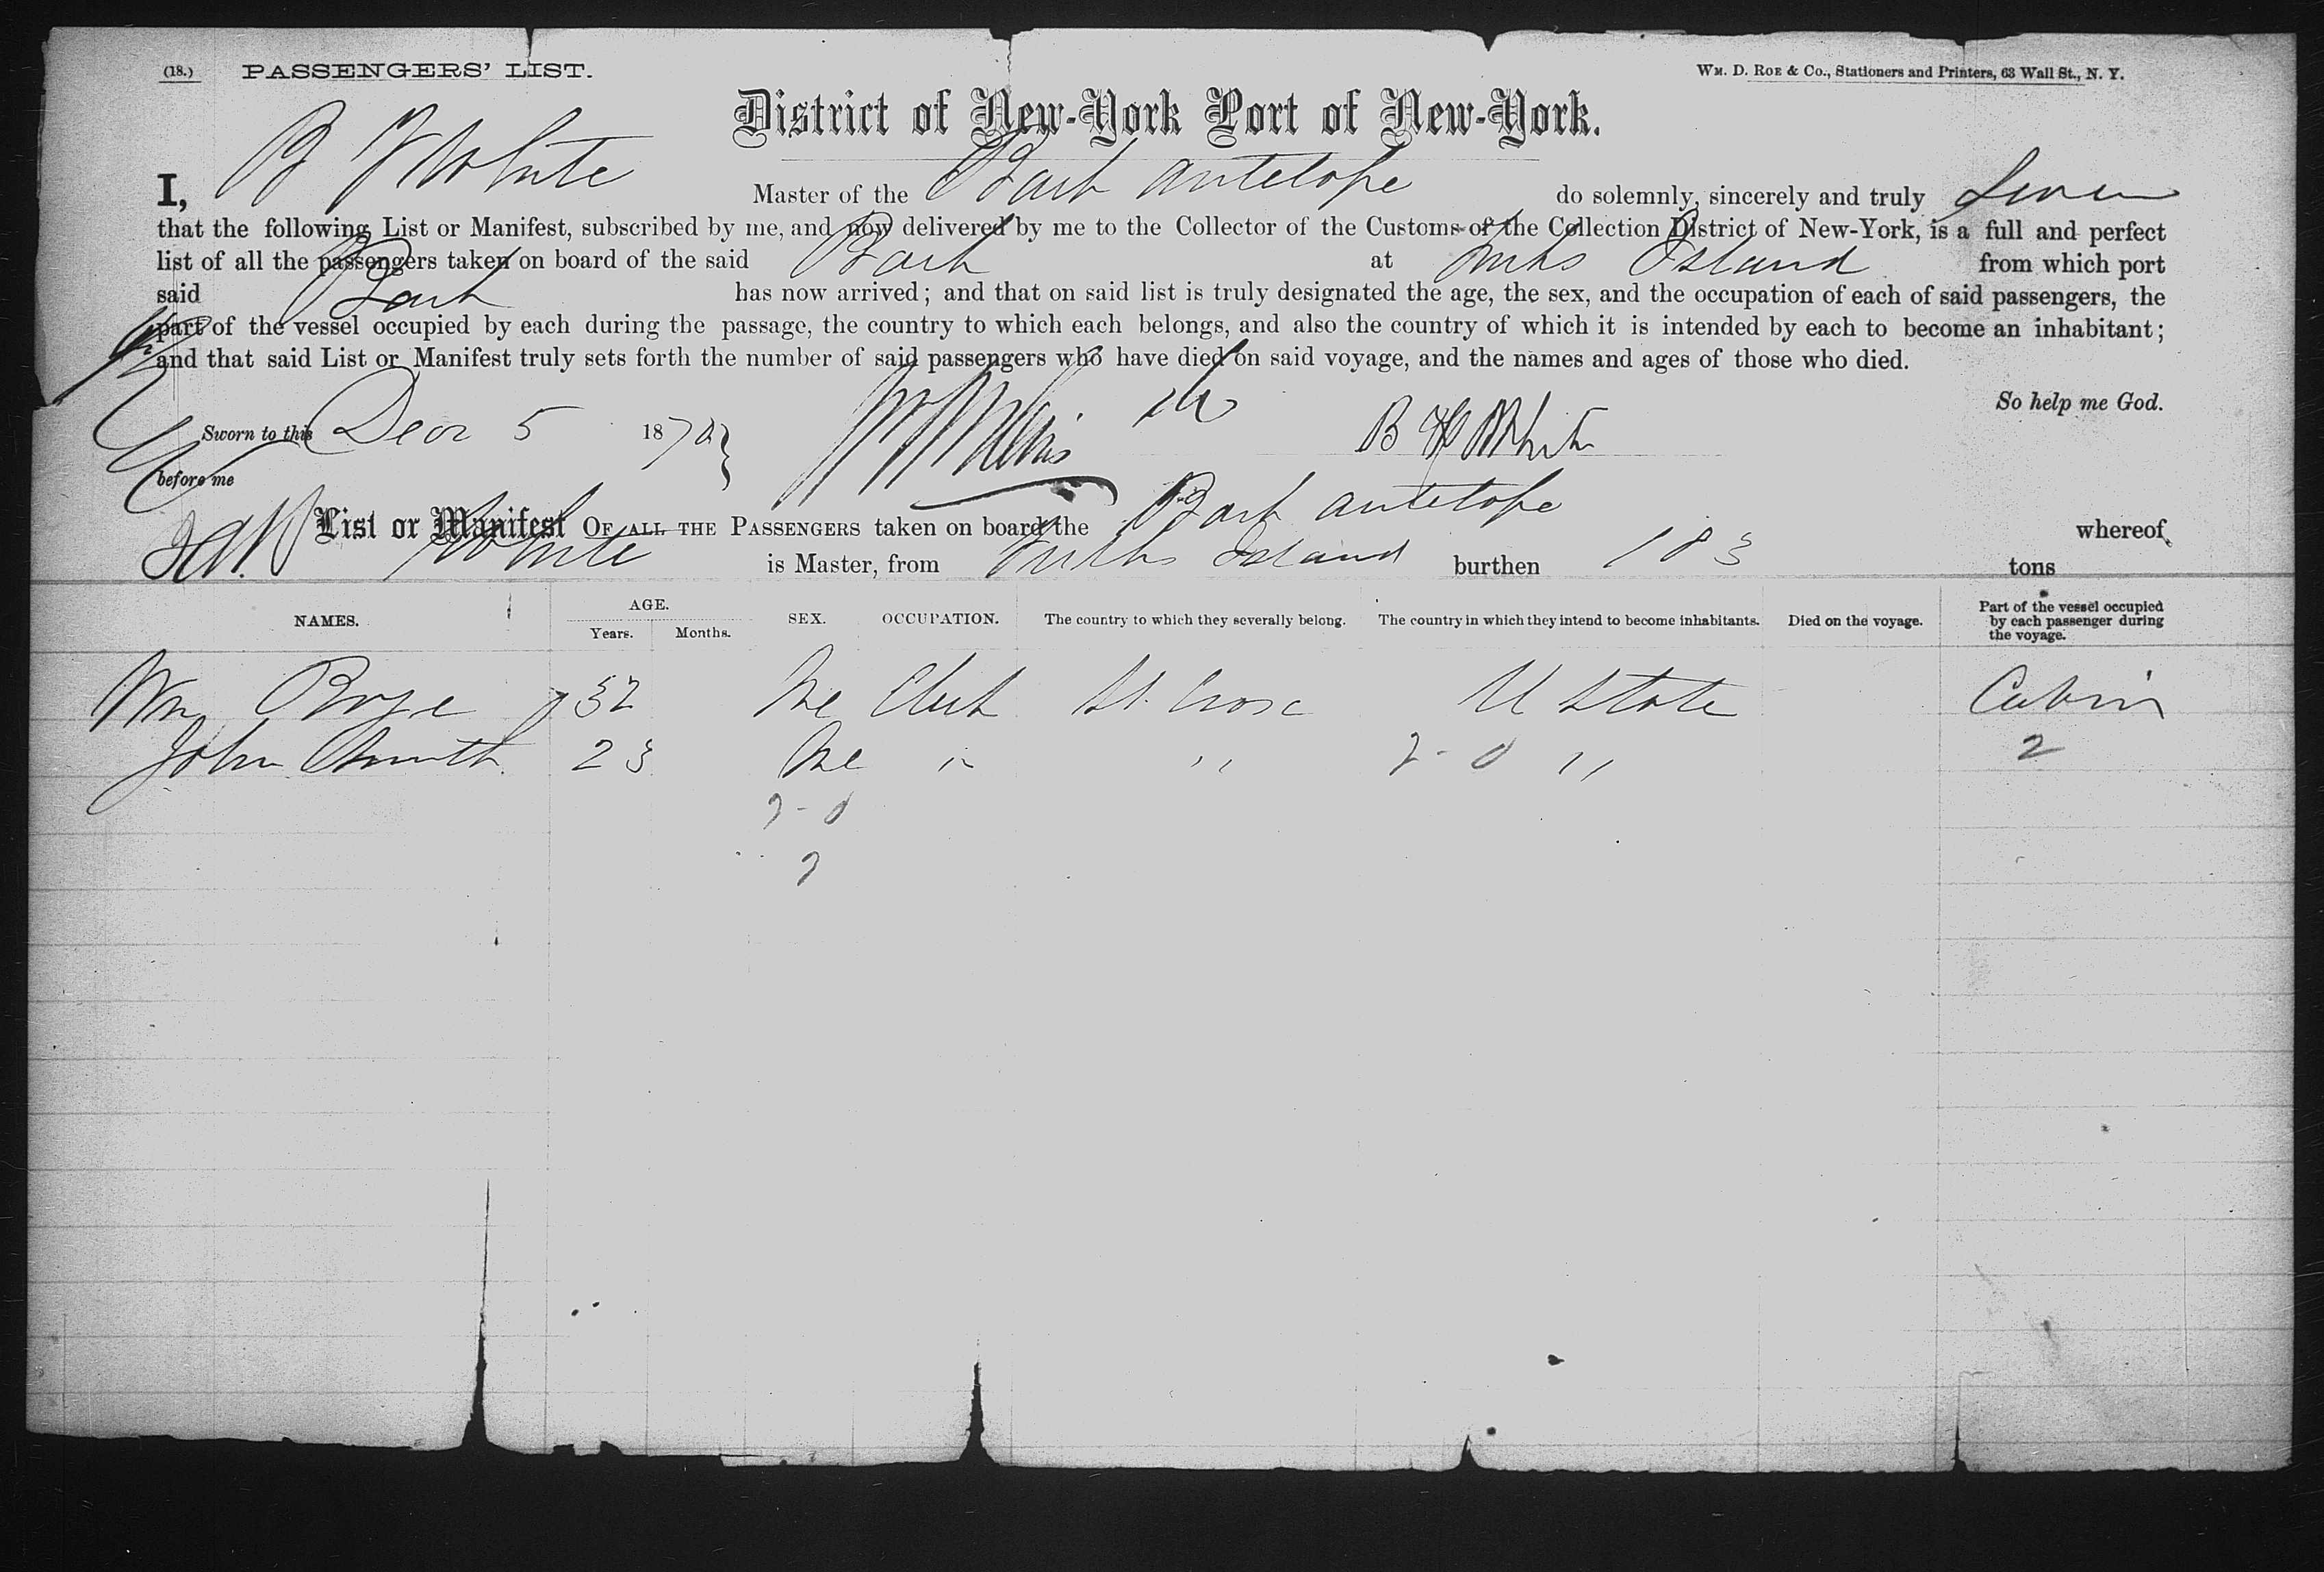 (18.) PASSENGERS' LIST. WM. D. ROE & CO., Stationers and Printers, 63 Wall St., N. Y.
District of New-York Port of New-York.
I, B White Master of the Bark Antelope do solemnly, sincerely and truly swear
that the following List or Manifest, subscribed by me, and now delivered by me to the Collector of the Customs of the Collection District of New-York, is a full and perfect
list of all the passengers taken on board of the said Bark at Turks Island from which port
said Bark has now arrived; and that on said list is truly designated the age, the sex, and the occupation of each of said passengers, the
part of the vessel occupied by each during the passage, the country to which each belongs, and also the country of which it is intended by each to become an inhabitant;
and that said List or Manifest truly sets forth the number of said passengers who have died on said voyage, and the names and ages of those who died.
So help me God.
Sworn to this Decr 5 1870 B White
before me
List or Manifest OF ALL THE PASSENGERS taken on board the Bark antelope whereof
White is Master, from Turks Island burthen 183 tons
NAMES. AGE. Years. Months. SEX. OCCUPATION. The country to which they severally belong. The country in which they intend to become inhabitants. Died on the voyage. Part of the vessel occupied by each passenger during the voyage.
Wm 32 Me St. Croix U State Cabin
John Smith 23 Me " " 2-0 " 2
2-0
2